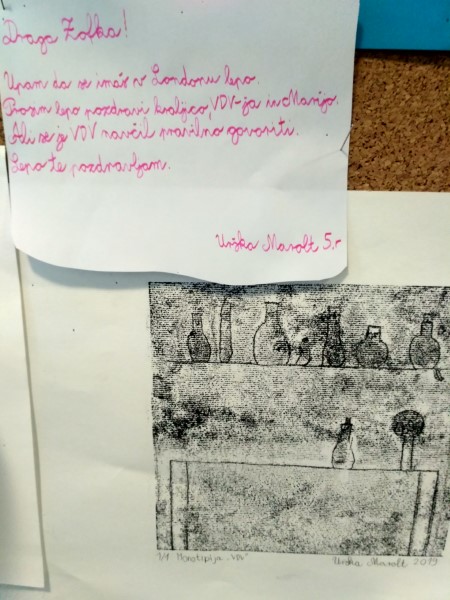 Draga Zofka!
Upam da se imaš v Londonu lepo.
Prosim lepo pozdravi kraljico, VDV-ja in Marijo.
Ali se je VDV naučil pravilno govoriti.
Lepo te pozdravljam.
Urška Marolt 5.r
1/1 Monotipija
Urška Marolt 2019